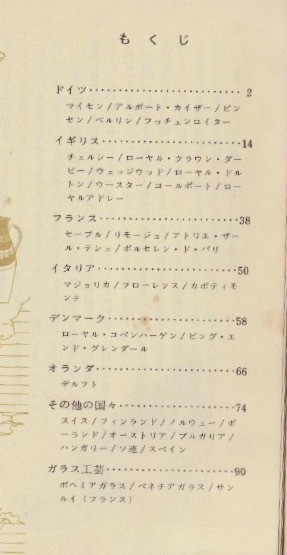 もくじ
ドイツ 2
マイセン/アルボート・カイザー/ビン
セン/ベルリン/フッチェンロイター
イギリス 14
チェルシー/ローヤル・クラウン・ダー
ビー/ウェッジウッド/ローヤル・ドル
トン/ウースター/コールポート/ロー
ヤルアドレー
フランス 38
セーブル/リモージュ/アトリエ・ザー
ル・テシュ/ポルセレン・ド・パリ
イタリア 50
マジョリカ/フローレンス/カポティモ
ンテ
デンマーク 58
ローヤル・コペンハーゲン/ビング・エ
ンド・グレンダール
オランダ 66
デルフト
その他の国々 74
スイス/フィンランド/ノルウェー/ポ
ーランド/オーストリア/ブルガリア/
ハンガリー/ソ連/スペイン
ガラス工芸 90
ボヘミアガラス/ベネチアガラス/サン
ルイ(フランス)